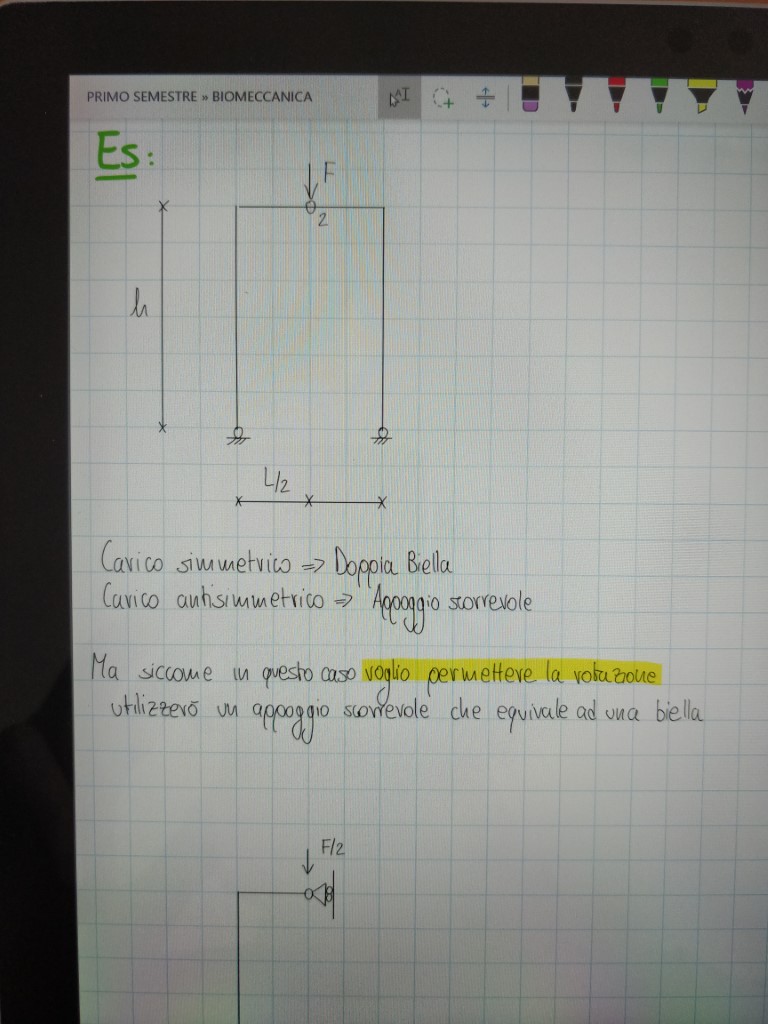 PRIMO SEMESTRE » BIOMECCANICA
Es:
F
2
h
L/2
Carico simmetrico => Doppia Biella
Carico antisimmetrico => Appoggio scorrevole
Ma siccome in questo caso voglio permettere la rotazione
utilizzerò un appoggio scorrevole che equivale ad una biella
F/2